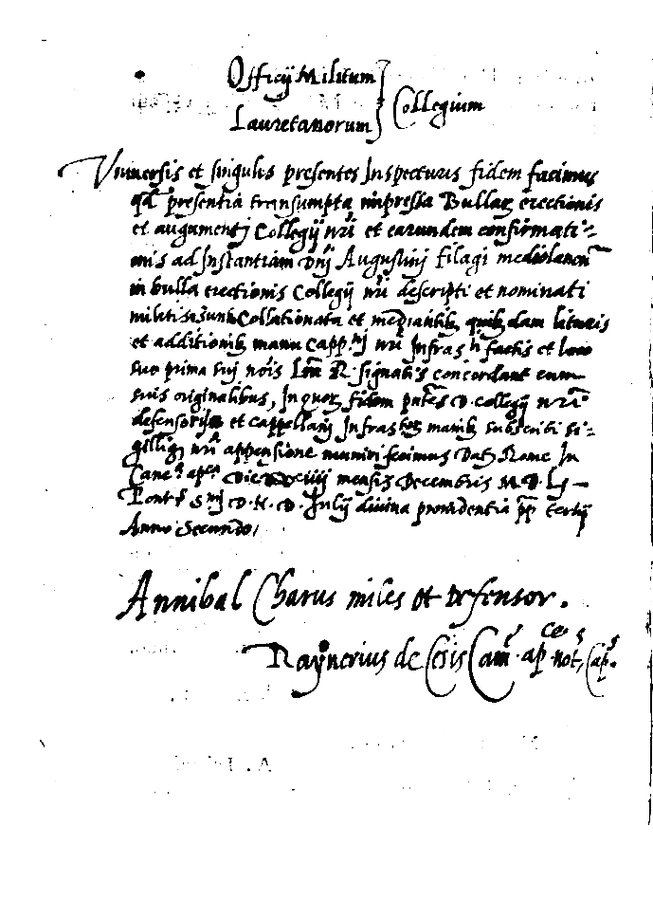 Officij Militum
Collegium
Lauretanorum
Vniuersis et singulis presentes Inspecturis fidem facimus
qd presentia transumpta impressa Bullaꝝ erectionis
et augumentj Collegij nrī et earundem confirmati-
onis ad Instantiam Dnj Augustinj filagi mediolanen̄
in bulla erectionis Collegij nrī descripti et nominati
militis sunt Collationata et mediantibꝫ quibusdam lituris
et additionibꝫ manu Capp.nj nrī Infras.ti factis et loco
suo prima suj nōis R. signatis concordant cum
suis originalibus, In quoꝝ fidem pntes D. collegij nrī
defensoris et cappellanj Infras.toꝝ manibꝫ subscribi si-
gilliqꝫ nrī appensione munirj fecimus Datꝫ Rome In
Canc.a ap.ca Die mensis Decembris M. D. Lj
Pont.s S.mj D. N. D. Iulij diuina prouidentia pp tertij
Anno Secundo/
Annibal Charus miles et defensor.
Raynerius de Cam. ap. not, Cap.s